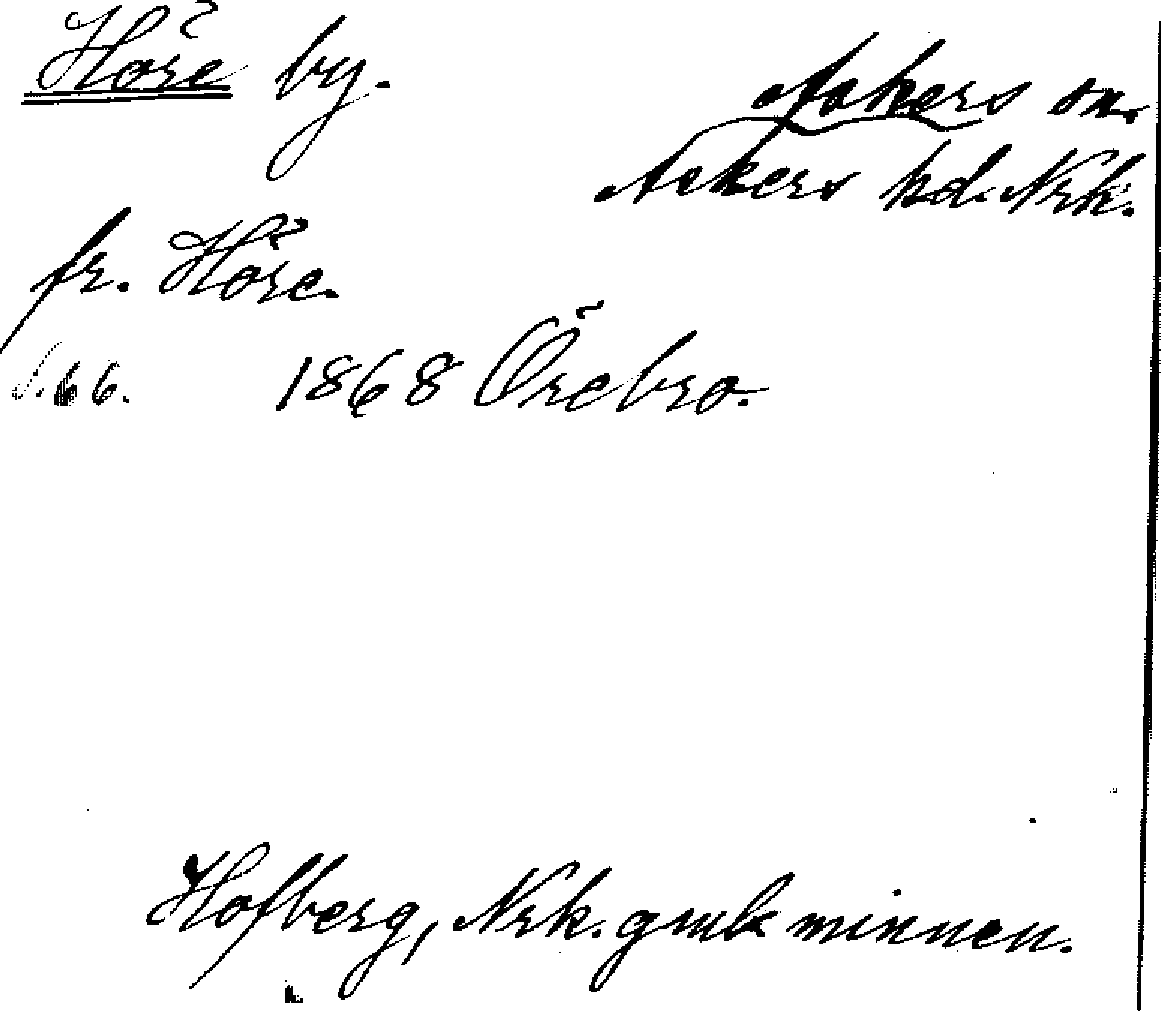 Höre by.
Askers sn.
Askers hd. Nrk.
fr. Höre.
S. 66. 1868 Örebro.
Hofberg, Nrk. gmla minnen.